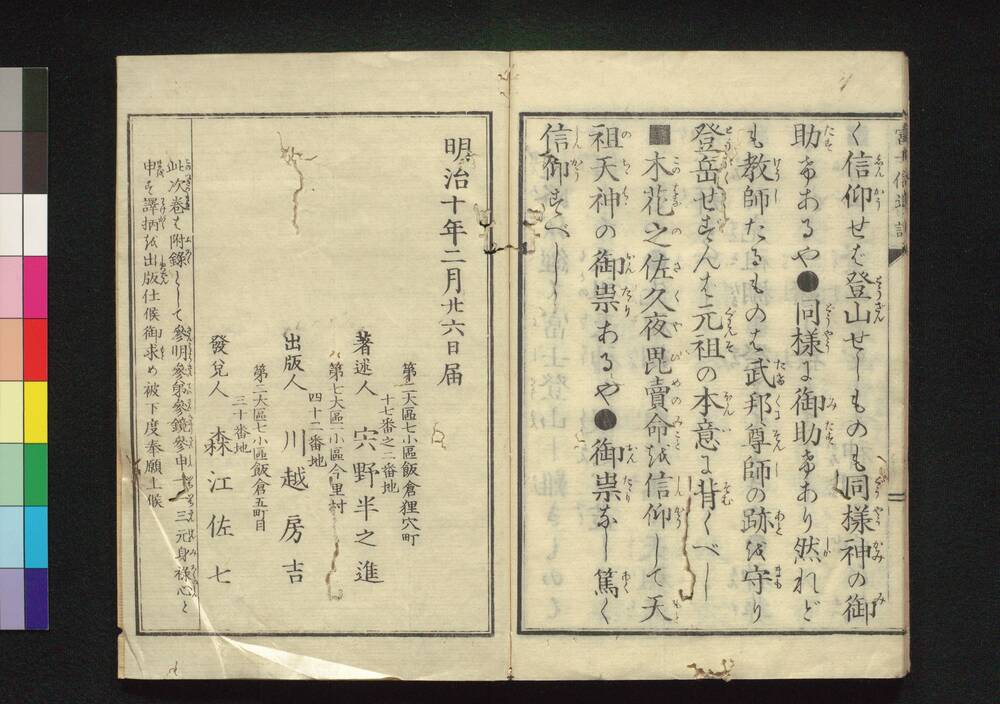 く信仰せば登山せしものも同様神の御
助けあるや●同様に御助けあり然れど
も教師たるものは武邦尊師の跡を守り
登岳せずんば元祖の本意に背くべし
■木花之佐久夜毘賣命を信仰して天
祖天神の御祟あるや●御祟なし篤く
信仰すべし
明治十年二月廿六日届
第二大區七小區飯倉狸穴町
十七番之二番地
著述人 宍野半之進
第七大區二小區今里村
四十二番地
出版人 川越房吉
第二大區七小區飯倉五町目
三十番地
發兌人 森江佐七
此次巻は附錄として參明參弟參鏡參申
三元身祿心と
申す譯柄を出版仕候御求め被下度奉願上候